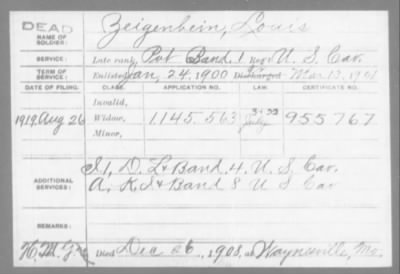 DEAD
NAME OF SOLDIER: Zeigenhein, Louis
SERVICE: Late rank, Pvt Band, 1 Reg't U. S. Cav.
TERM OF SERVICE: Enlisted Jan. 24, 1900 Discharged Mar. 13, 1901
DATE OF FILING. CLASS. APPLICATION NO. LAW. CERTIFICATE NO.
Invalid,
1919 Aug 26 Widow, 1145,563 955767
Minor,
ADDITIONAL SERVICES: Band, 4. U. S. Cav.
Band 8 U S Cav
REMARKS:
Died Dec 26, 1908, at Waynesville, Mo.